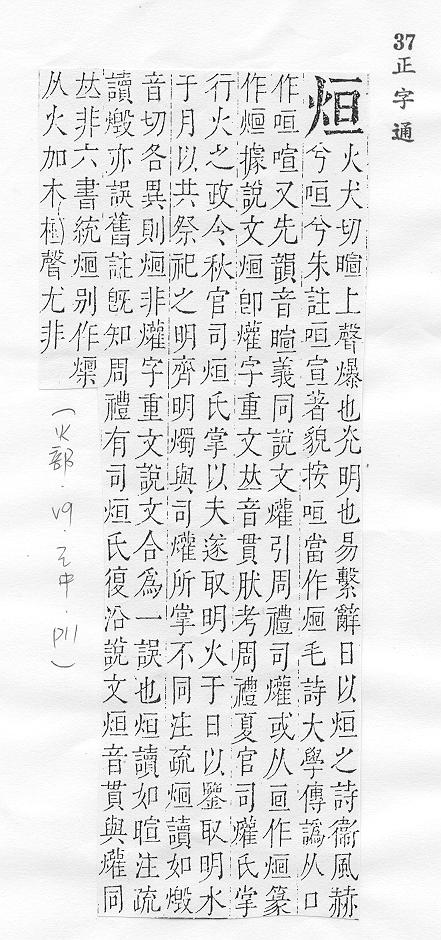 37
正字通
烜
火犬切暄上聲爆也光明也易繫辭日以烜之詩衞風赫
兮咺兮朱註咺宣著貌按咺當作烜毛詩大學傳譌从口
作咺喧又先韻音暄義同說文爟引周禮司爟或从亘作烜篆
作烜據說文烜卽爟字重文𠀤音貫肰考周禮夏官司爟氏掌
行火之政令秋官司烜氏掌以夫遂取明火于日以鑒取明水
于月以共祭祀之明齊明燭與司爟所掌不同注疏烜讀如燬
音切各異則烜非爟字重文說文合爲一誤也烜讀如暄注疏
讀燬亦誤舊註旣知周禮有司烜氏復沿說文烜音貫與爟同
𠀤非六書統烜别作
从火加木聲尤非
(火部．V9．巳中．P11)